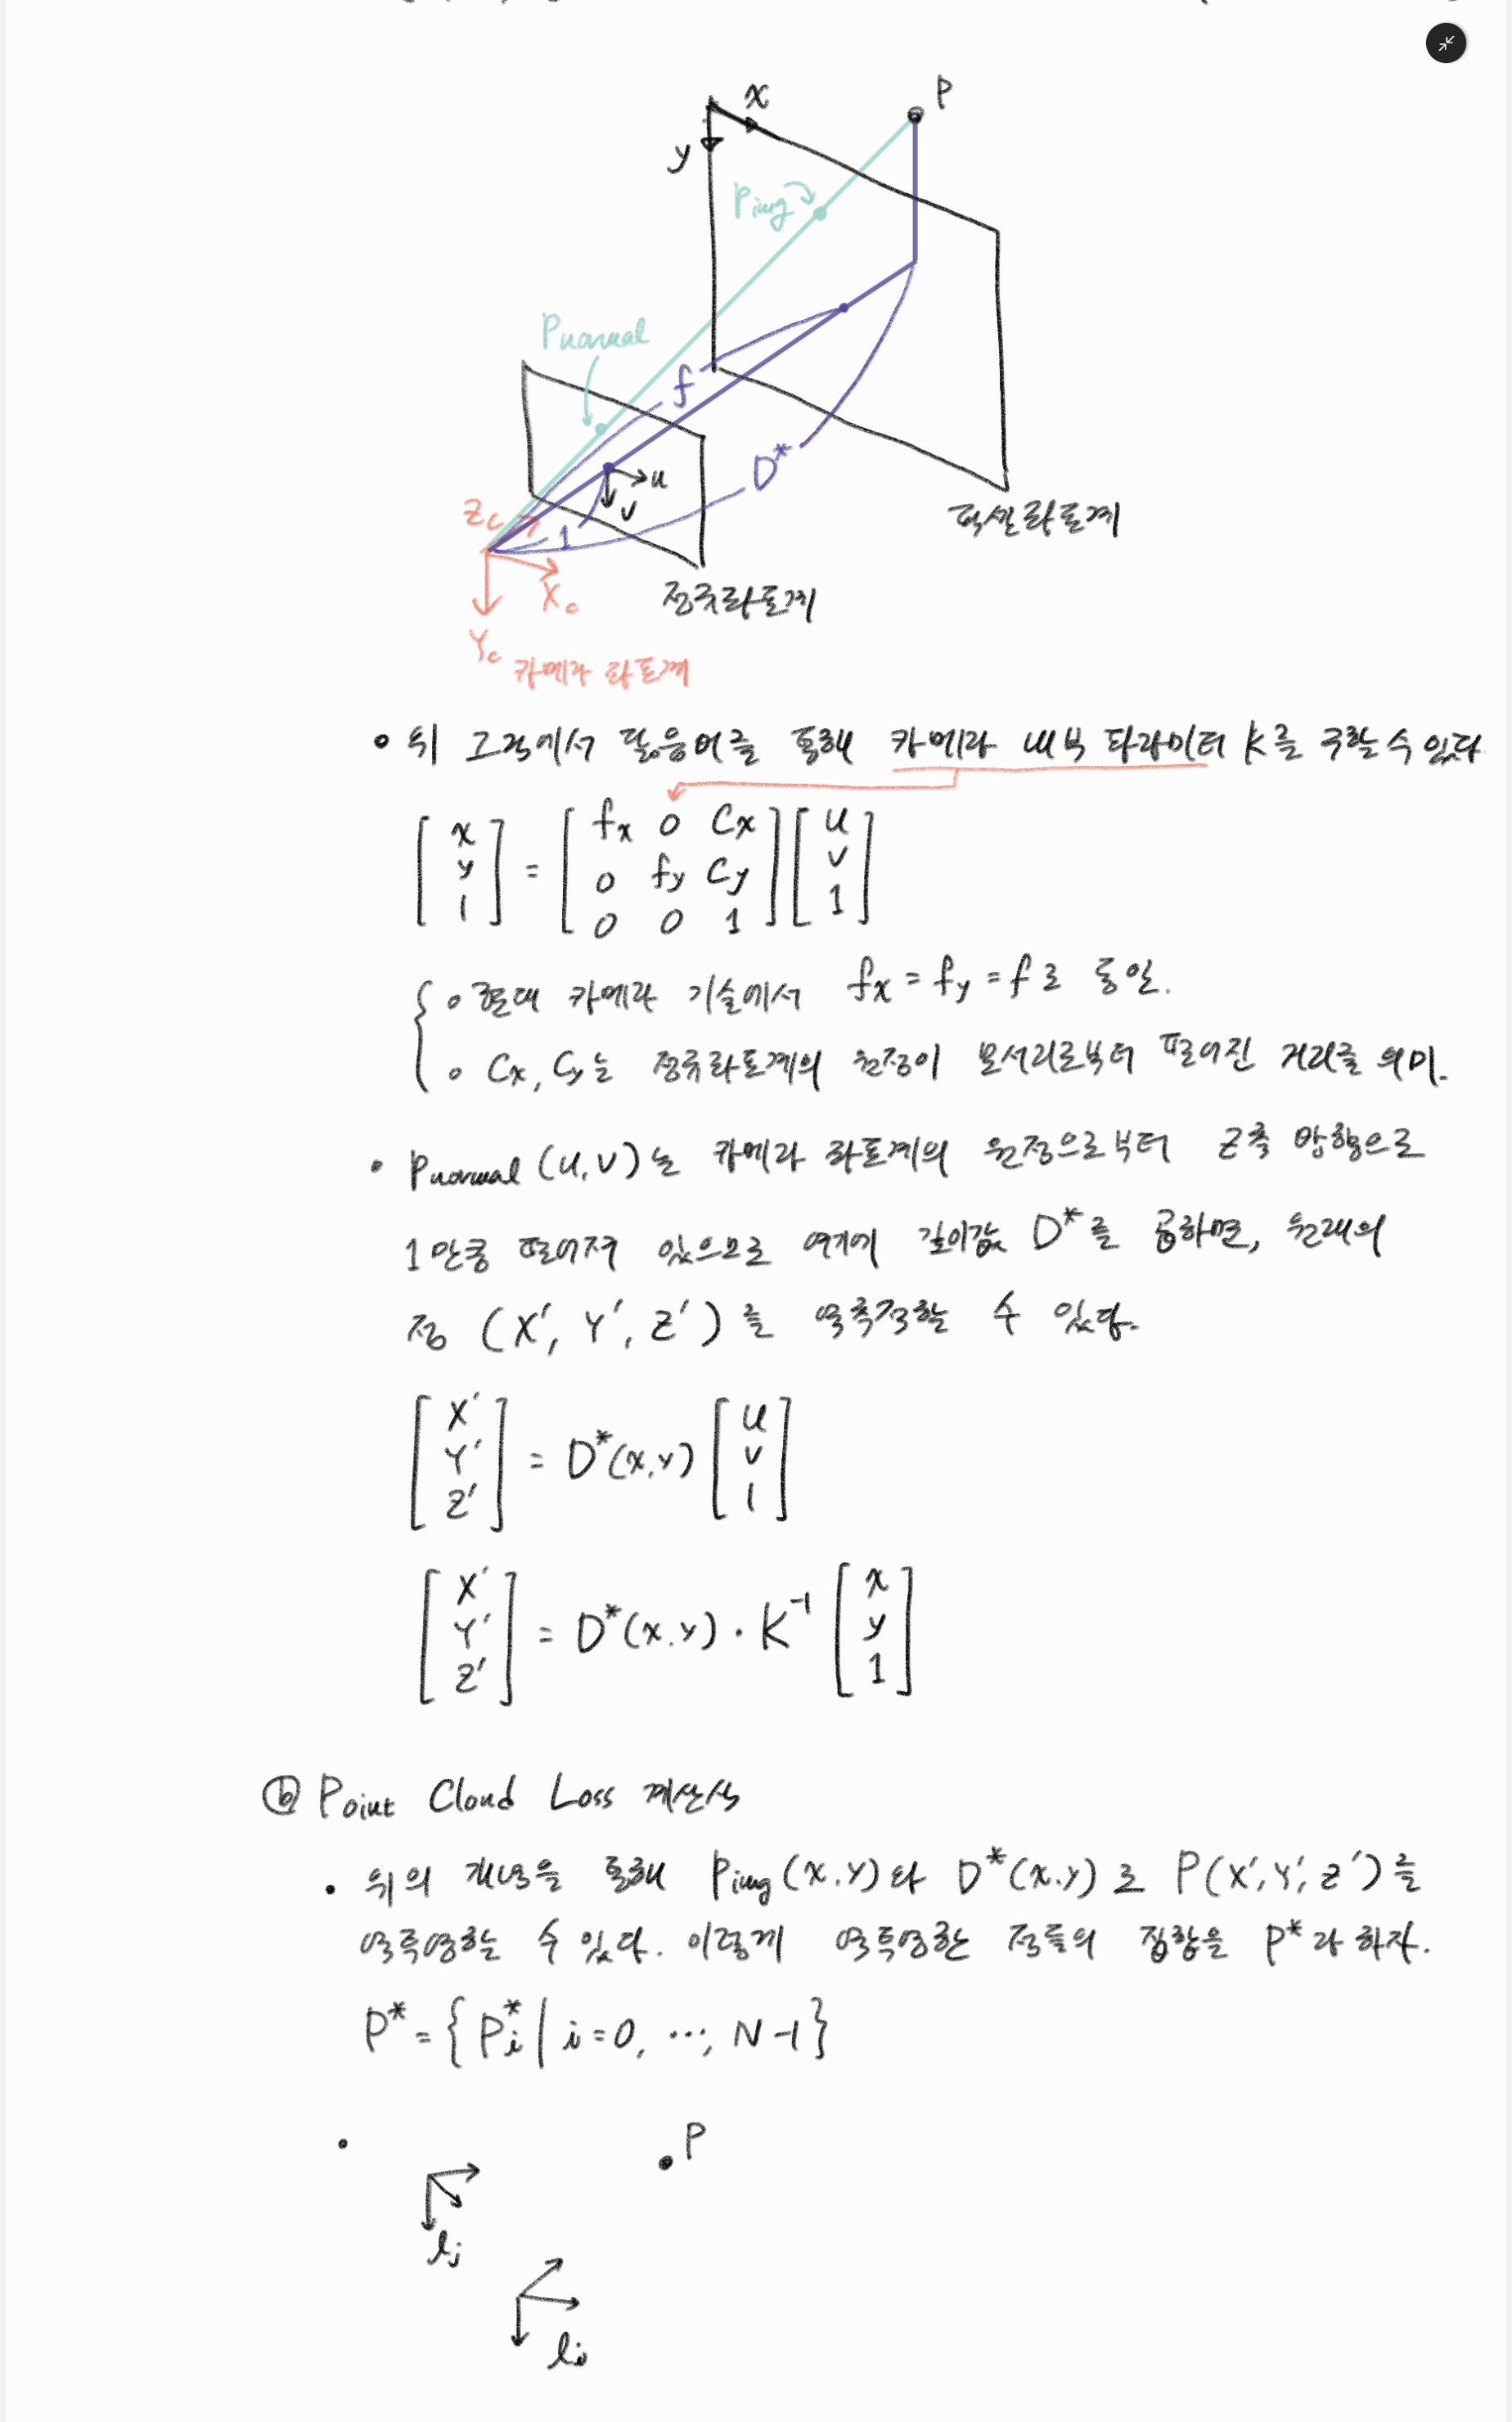 x
P
y
Pimg
Pnormal
f
D*
u
v
1
Zc
Xc
Yc
픽셀좌표계
정규좌표계
카메라 좌표계
• 위 그림에서 닮음비를 통해 카메라 내부 파라미터 K를 구할 수 있다
[x y 1] = [fx 0 Cx; 0 fy Cy; 0 0 1] [u v 1]
∘ 현대 카메라 기술에서 fx = fy = f로 동일.
∘ Cx, Cy는 정규좌표계의 원점이 모서리로부터 떨어진 거리를 의미.
• Pnormal (u, v)는 카메라 좌표계의 원점으로부터 Z축 방향으로
1만큼 떨어져 있으므로 여기에 깊이값 D*를 곱하면, 원래의
점 (X', Y', Z')를 역측정할 수 있다.
[X' Y' Z'] = D*(x.y) [u v 1]
[X' Y' Z'] = D*(x.y) · K⁻¹ [x y 1]
ⓑ Point Cloud Loss 계산식
• 위의 개념을 통해 Pimg(x.y)와 D*(x.y)로 P(X',Y',Z')를
역투영할 수 있다. 이렇게 역투영한 점들의 집합을 P*라 하자.
P* = { Pi* | i = 0, ⋯, N-1 }
•
P
lj
li